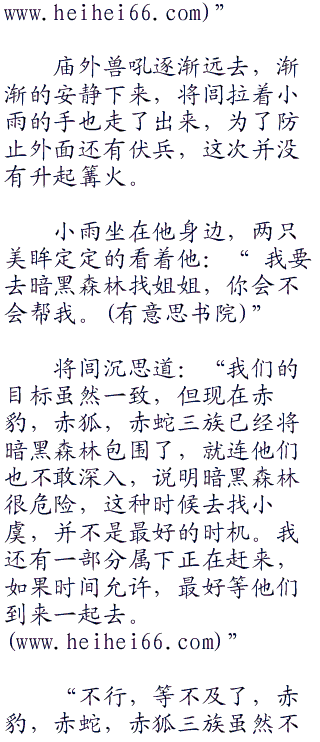 www.heihei66.com)”
庙外兽吼逐渐远去，渐
渐的安静下来，将闾拉着小
雨的手也走了出来，为了防
止外面还有伏兵，这次并没
有升起篝火。
小雨坐在他身边，两只
美眸定定的看着他：“ 我要
去暗黑森林找姐姐，你会不
会帮我。(有意思书院)”
将闾沉思道：“我们的
目标虽然一致，但现在赤
豹，赤狐，赤蛇三族已经将
暗黑森林包围了，就连他们
也不敢深入，说明暗黑森林
很危险，这种时候去找小
虞，并不是最好的时机。我
还有一部分属下正在赶来，
如果时间允许，最好等他们
到来一起去。
(www.heihei66.com)”
“不行，等不及了，赤
豹，赤蛇，赤狐三族虽然不